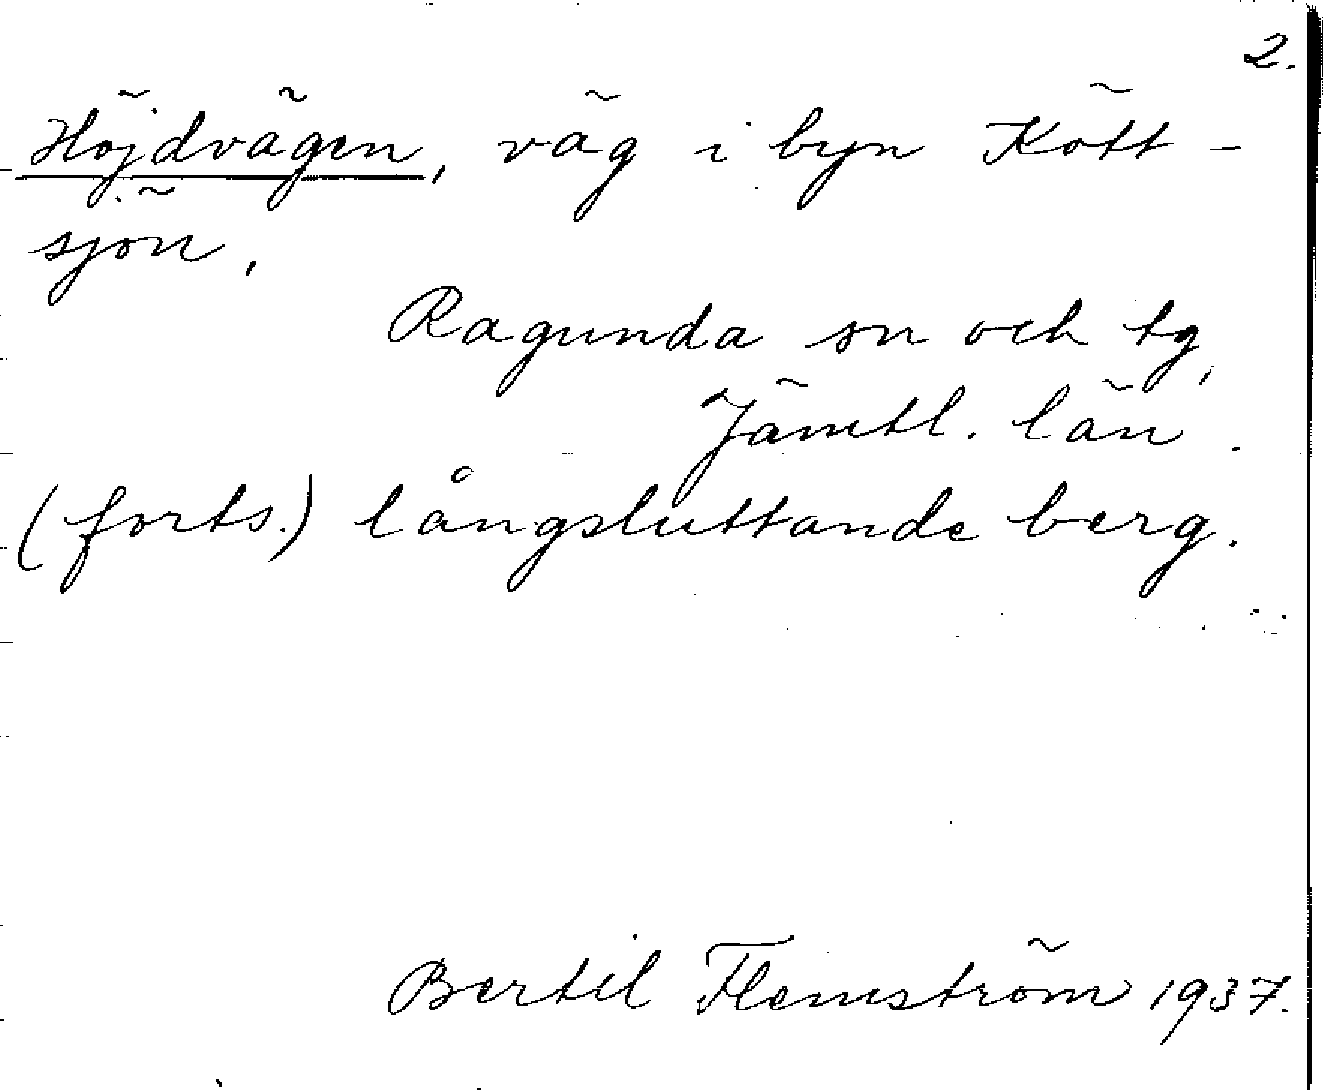 2.
Höjdvägen, väg i byn Kött-
sjön,
Ragunda sn och tg,
Jämtl. län.
(forts.) långsluttande berg.
Bertil Flemström 1937.